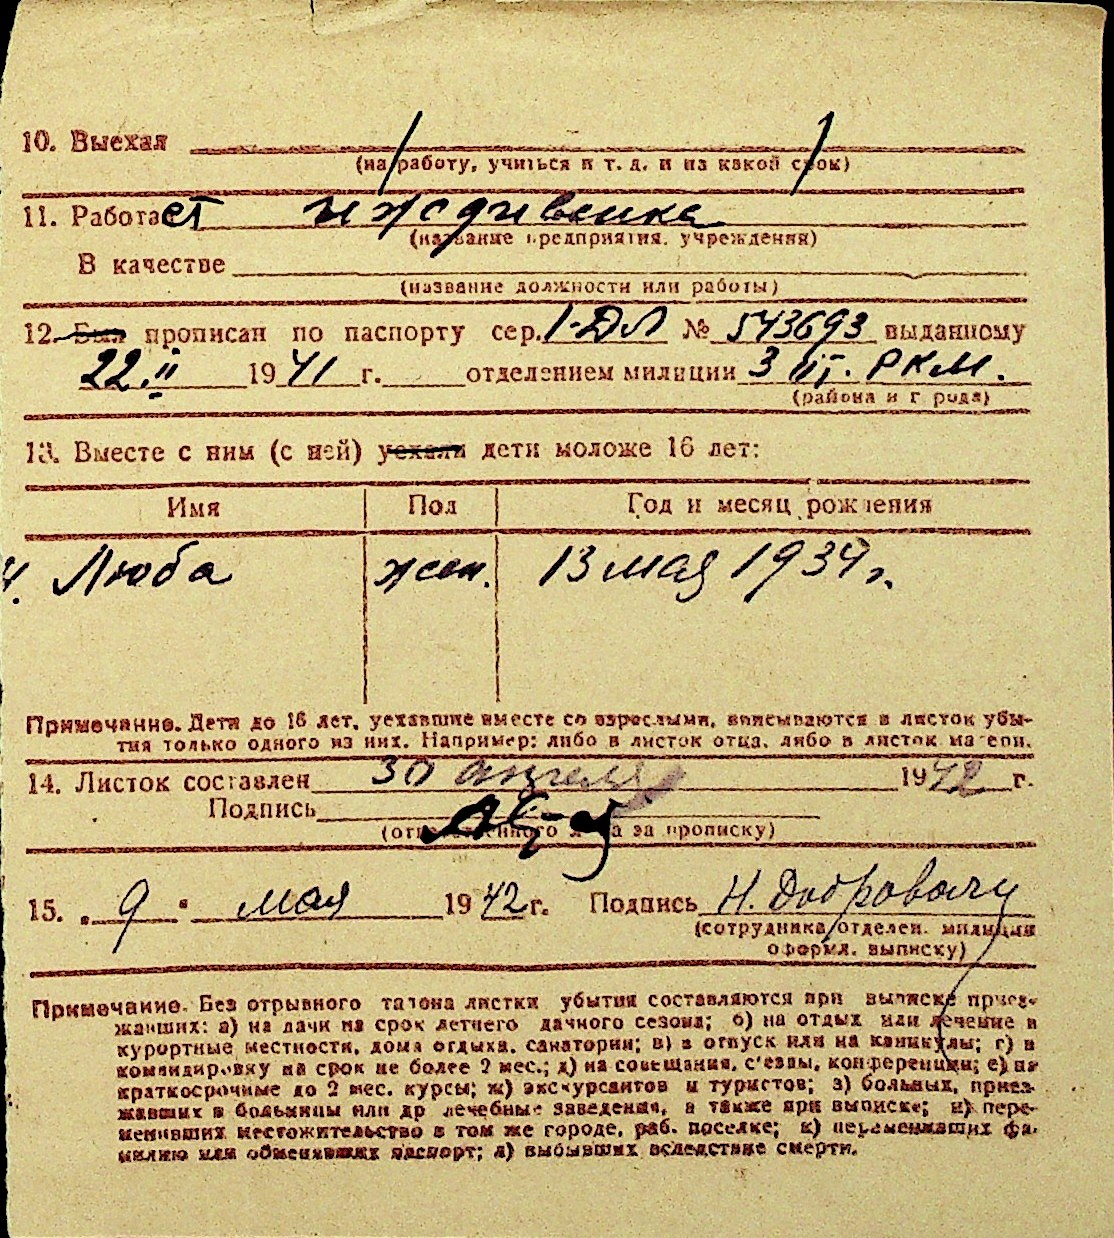 10. Выехал
(на работу, учиться и т. д. и на какой срок)
11. Работает иждивенка
(название предприятия, учреждения)
В качестве
(название должности или работы)
12. Был прописан по паспорту сер. I-ДЛ № 543693 выданному
22.II 1941 г. отделением милиции 3 РКМ.
(района и города)
13. Вместе с ним (с ней) уехали дети моложе 16 лет:
Имя Пол Год и месяц рождения
Люба жен. 13 мая 1934 г.
Примечание. Дети до 16 лет, уехавшие вместе со взрослыми, вписываются в листок убы-
тия только одного из них. Например: либо в листок отца, либо в листок матери.
14. Листок составлен 30 апреля 1942 г.
Подпись
(ответственного лица за прописку)
15. „9" мая 1942 г. Подпись Н.
(сотрудника отделен. милиции
оформл. выписку)
Примечание. Без отрывного талона листки убытия составляются при выписке приез-
жавших: а) на дачи на срок летнего дачного сезона; б) на отдых или лечение в
курортные местности, дома отдыха, санатории; в) в отпуск или на каникулы; г) в
командировку на срок не более 2 мес.; д) на совещания, с'езды, конференции; е) на
краткосрочные до 2 мес. курсы; ж) экскурсантов и туристов; з) больных, приез-
жавших в больницы или др лечебные заведения, а также при выписке; и) пере-
менивших местожительство в том же городе, раб. поселке; к) переменивших фа-
милию или обменявших паспорт; л) выбывших вследствие смерти.